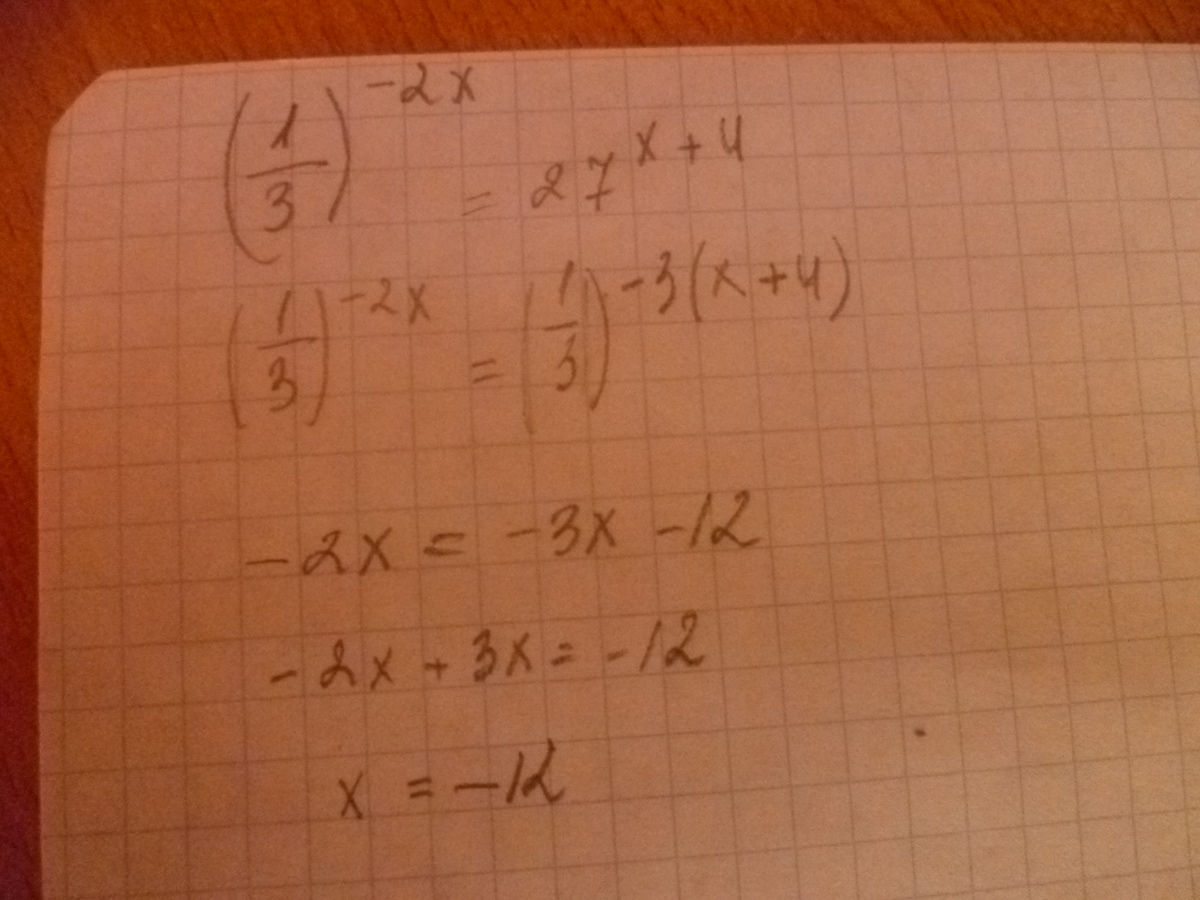 (1/3)^(-2x) = 27^(x+4)
(1/3)^(-2x) = (1/3)^(-3(x+4))
-2x = -3x -12
-2x + 3x = -12
x = -12